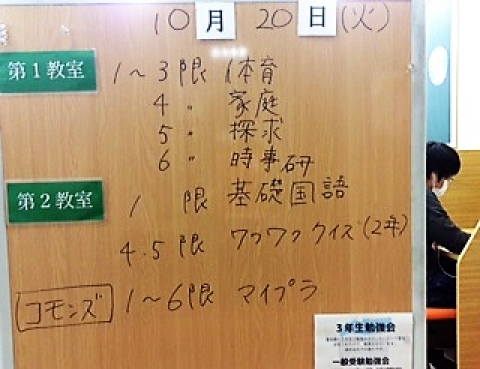 10月20日(火)
第1教室 1～3限 体育
4 〃 家庭
5 〃 探求
6 〃 時事研
第2教室 1 限 基礎国語
4.5限 ワクワククイズ(2年)
コモンズ 1～6限 マイプラ
3年生勉強会
一般受験勉強会